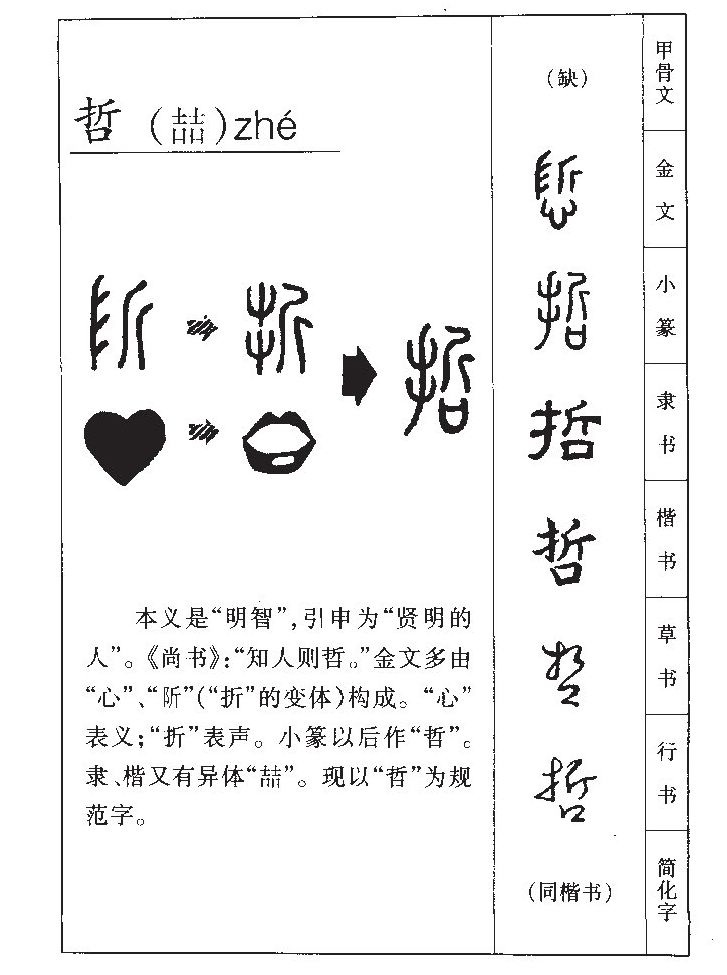 哲（喆）zhé
本义是“明智”，引申为“贤明的
人”。《尚书》：“知人则哲。”金文多由
“心”、“阶”（“折”的变体）构成。“心”
表义；“折”表声。小篆以后作“哲”。
隶、楷又有异体“喆”。现以“哲”为规
范字。
（缺）
甲骨文
金文
哲
小篆
哲
隶书
哲
楷书
哲
草书
哲
行书
（同楷书）
简化字